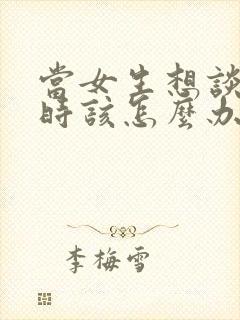 當女生想談
時該怎麼办
李梅雪